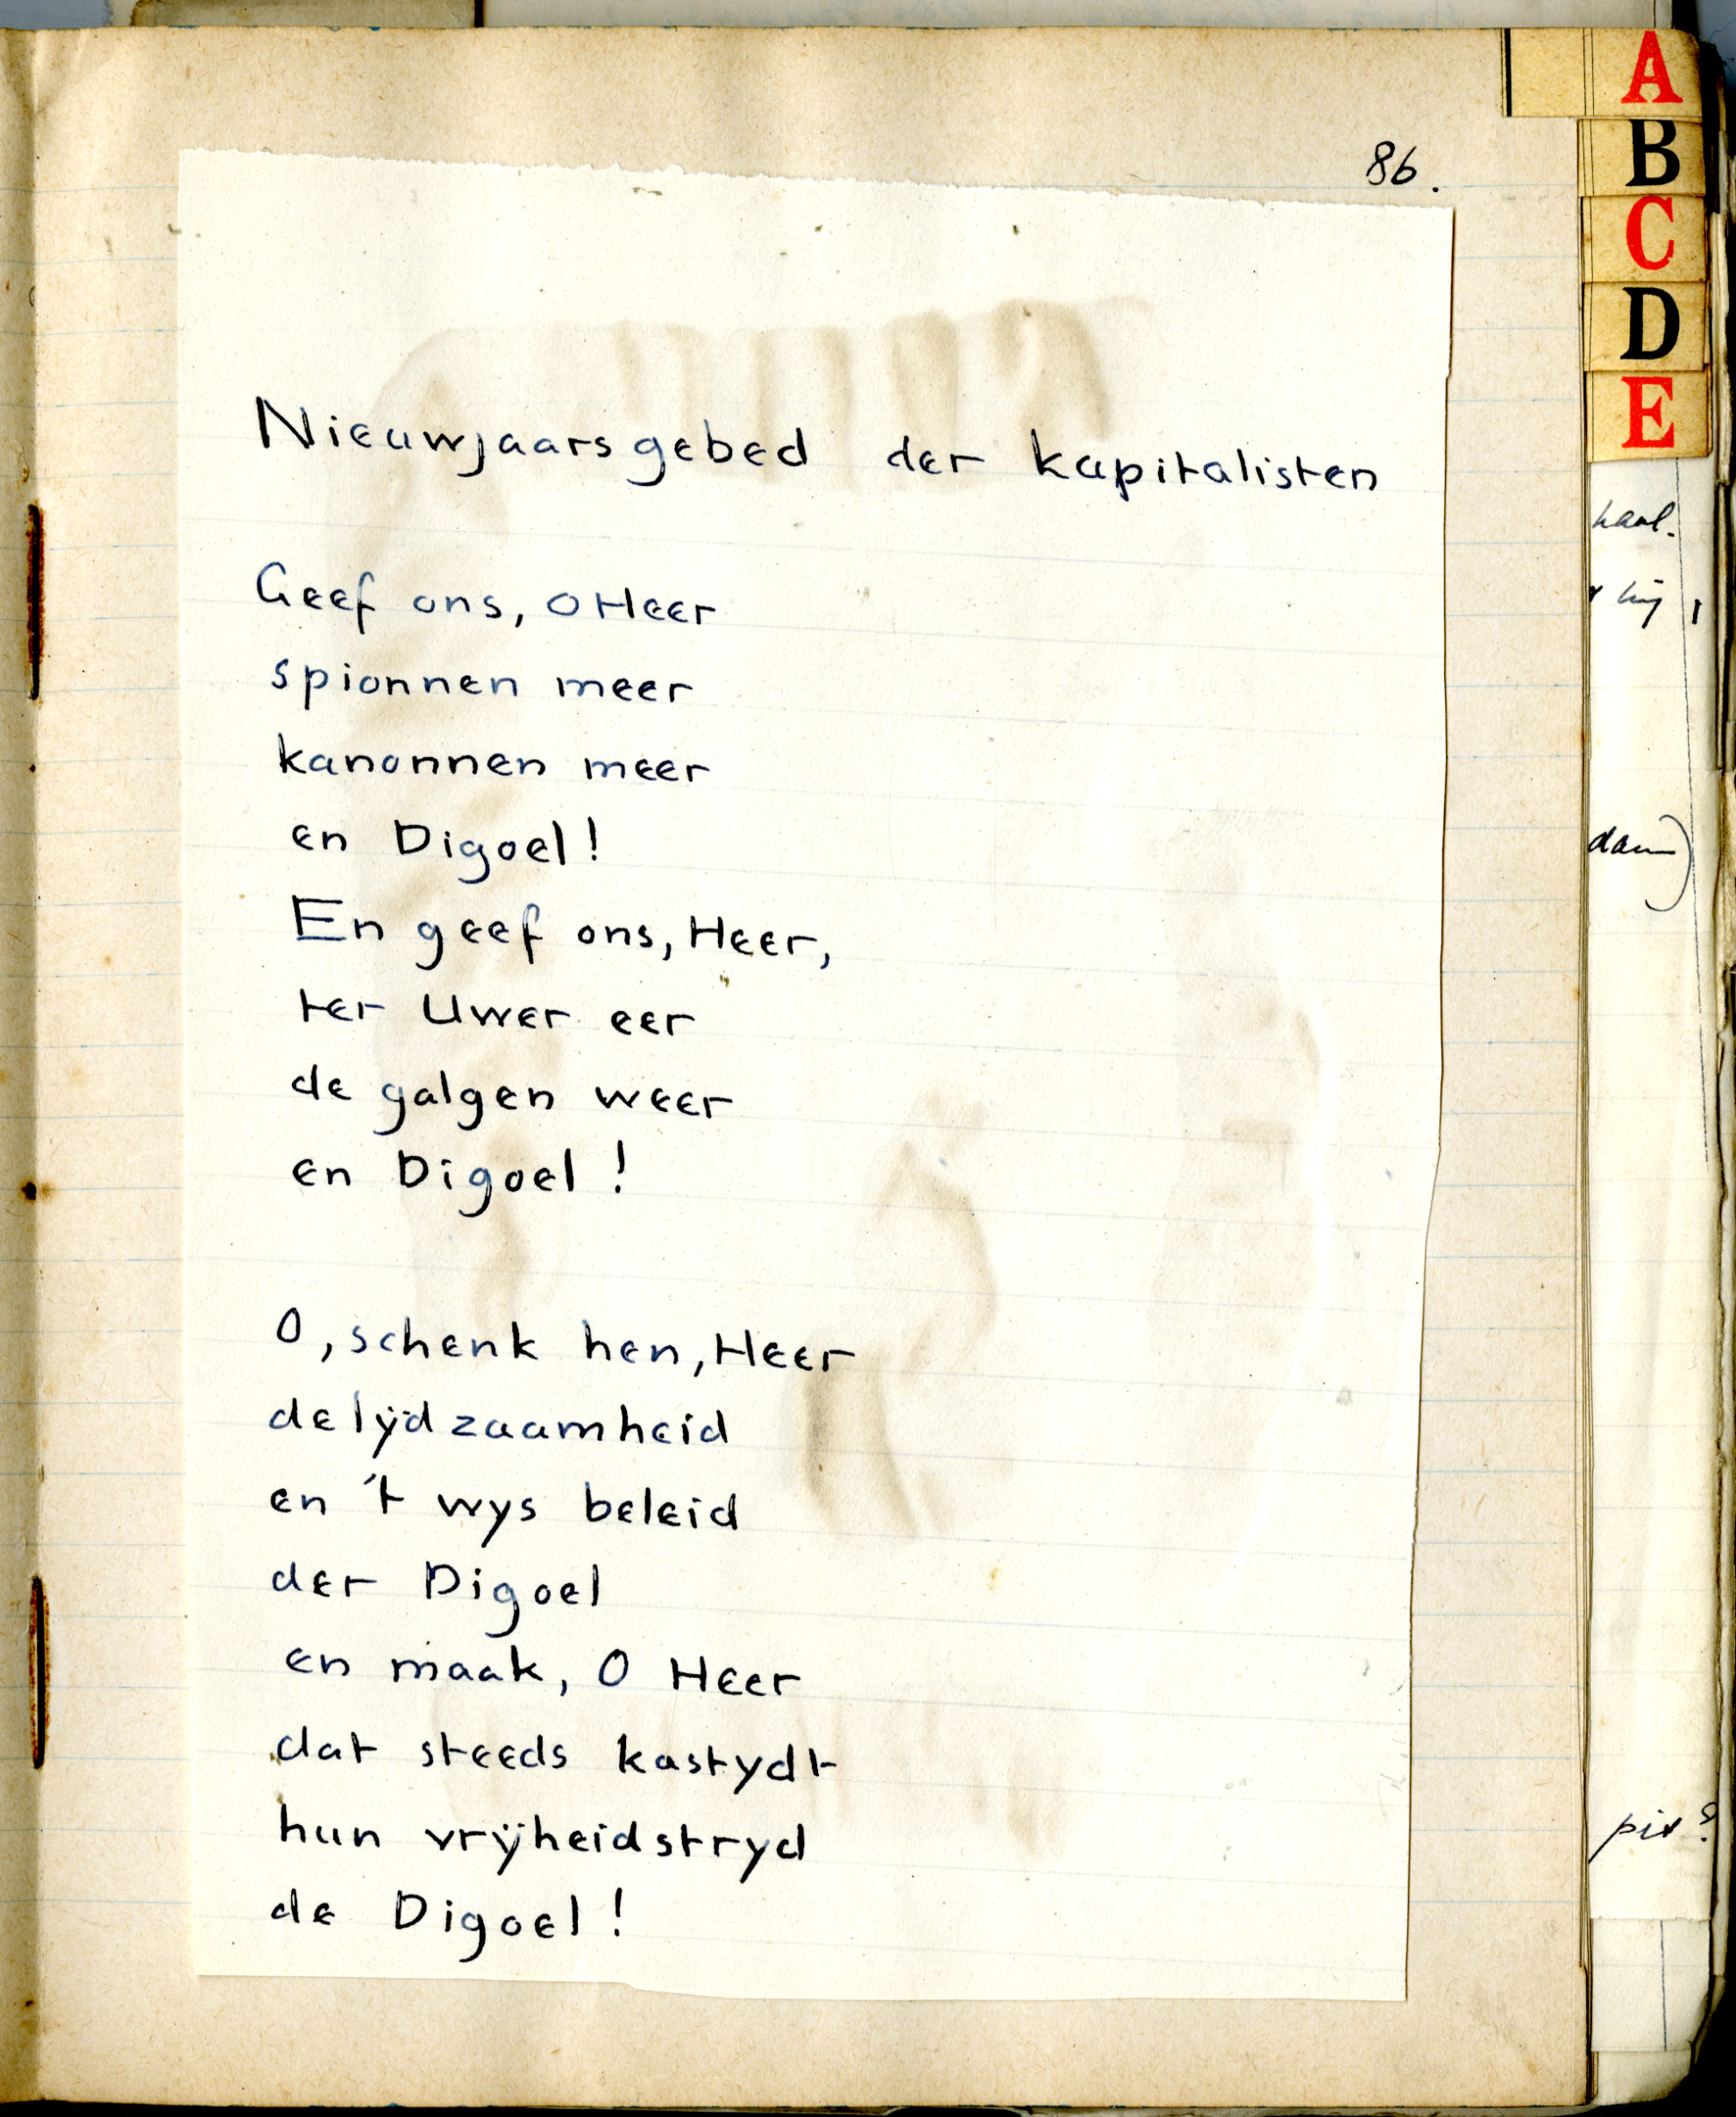 86.
Nieuwjaarsgebed der kapitalisten
Geef ons, O Heer
spionnen meer
kanonnen meer
en Digoel!
En geef ons, Heer,
ter Uwer eer
de galgen weer
en Digoel!
O, schenk hen, Heer
de lÿdzaamheid
en 't wys beleid
der Digoel
en maak, O Heer
dat steeds kastydt
hun vrÿheidstryd
de Digoel!
A
B
C
D
E
dam)